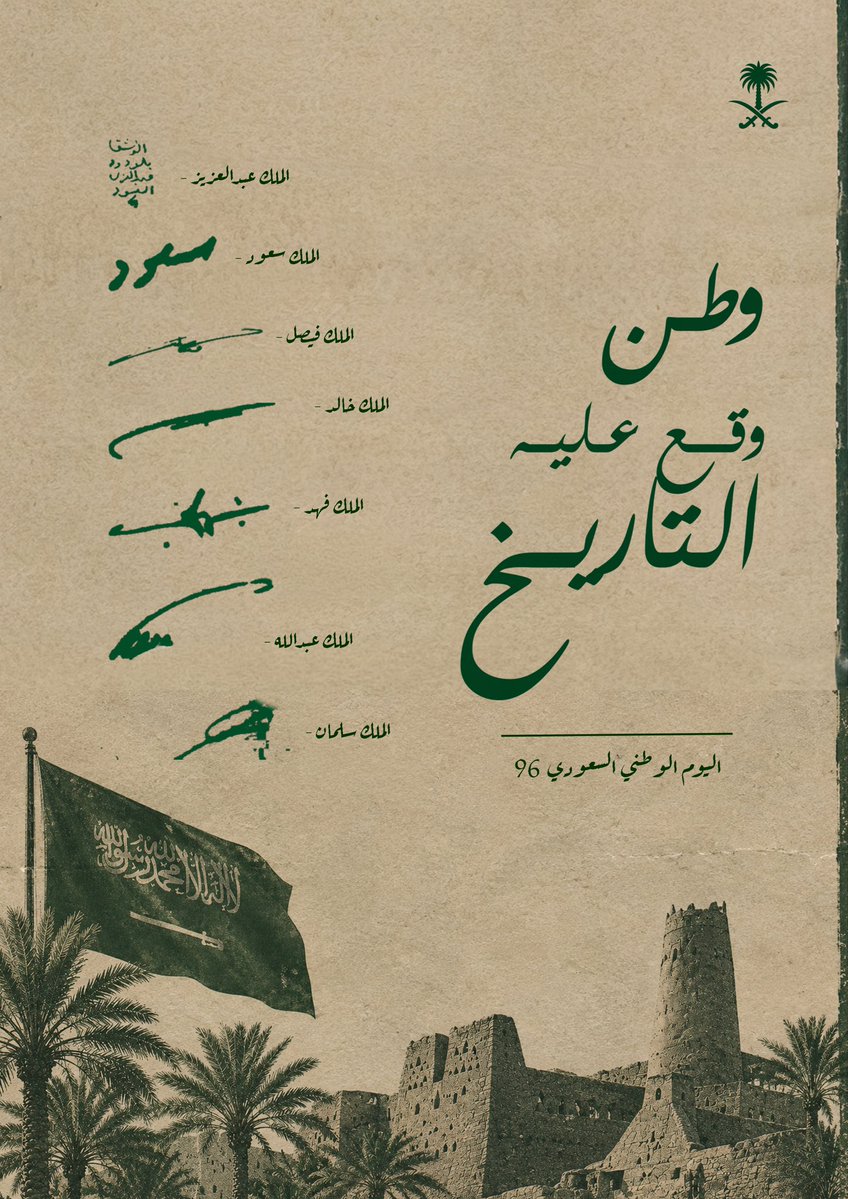 وطن
وقع عليه
التاريخ
اليوم الوطني السعودي 96
الملك عبدالعزيز -
الملك سعود -
سعود
الملك فيصل -
الملك خالد -
الملك فهد -
الملك عبدالله -
الملك سلمان -
لا إله إلا الله محمد رسول الله